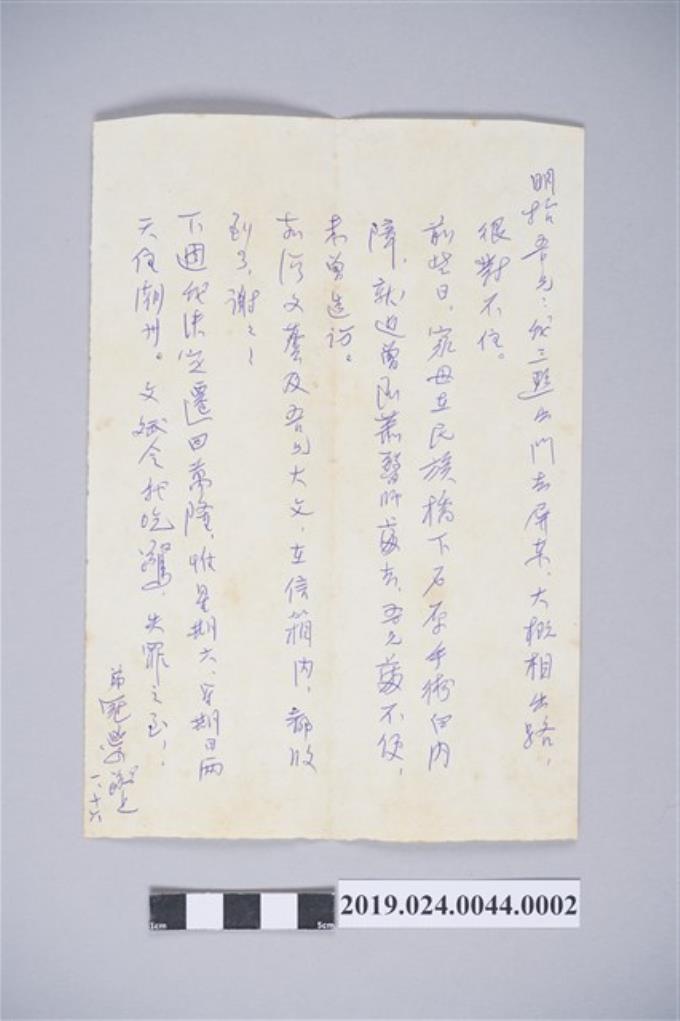 明哲吾兄：我三點出門去屏東，大概相出路，
很對不住。
前些日，家母在民族橋下石原手術白內
障，就近曾陽蕭醫師處去，吾兄處不便，
未曾造訪。
台灣文藝及吾兄大文，在信箱內，都收
到了，謝謝！
下週我決定遷回萬隆，惟星期六、星期日兩
天住潮州。文斌令我吃驚，失罪之至！
弟 上
一、十六
1cm 5cm
2019.024.0044.0002